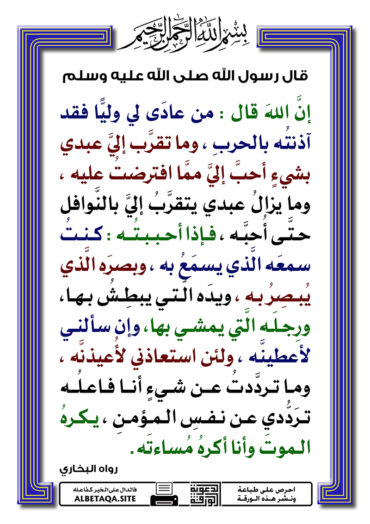 بسم الله الرحمن الرحيم
قال رسول الله صلى الله عليه وسلم
إنَّ اللهَ قال : من عادَى لي وليًّا فقد
آذنتُه بالحربِ ، وما تقرَّب إليَّ عبدي
بشيءٍ أحبَّ إليَّ ممَّا افترضتُ عليه ،
وما يزالُ عبدي يتقرَّبُ إليَّ بالنَّوافلِ
حتَّى أُحبَّه ، فإذا أحببتُه : كنتُ
سمعَه الَّذي يسمَعُ به ، وبصرَه الَّذي
يُبصِرُ به ، ويدَه التي يبطِشُ بها،
ورجلَه الَّتي يمشي بها، وإن سألني
لأعطينَّه ، ولئن استعاذني لأعيذنَّه ،
وما تردَّدتُ عن شيءٍ أنا فاعلُه
ترَدُّدي عن نفسِ المؤمنِ ، يكرهُ
الموتَ وأنا أكرهُ مُساءتَه .
رواه البخاري
احرص على طباعة
ونشر هذه الورقة
الدعوية
الورقة
فالدال على الخير كفاعله
ALBETAQA.SITE